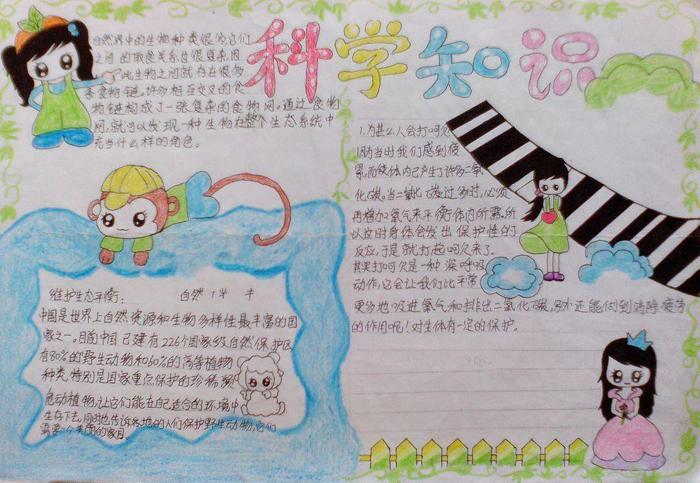 科学知识
自然界中的生物种类很多,它们
之间的取食关系也很复杂,因
此生物之间就存在很多
条食物链,许多相互交叉的食
物链构成了一张复杂的食物网。通过食物
网,就可以发现一种生物在整个生态系统中
充当什么样的角色。
1.为甚么人会打呵欠
因为当时我们感到疲
累,而使体内已产生了许多二氧
化碳。当二氧化碳过多时,必须
再增加氧气来平衡体内所需。所
以这时身体会发出保护性的
反应,于是就打起呵欠来了。
其实打呵欠是一种深呼吸
动作,它会让我们比平常
更多地吸进氧气和排出二氧化碳,另外还能做到消除疲劳
的作用呢!对生体有一定的保护。
维护生态平衡: 自然
中国是世界上自然资源和生物多样性最丰富的国
家之一。目前中国已建有226个国家级自然保护区
有80%的野生动物和60%的高等植物
种类,特别是国家重点保护的珍稀濒
危动植物,让它们能在自己适合的环境中
生存下去。同时也告诉各地的人们保护野生动物,它们
需要一个美丽的家园